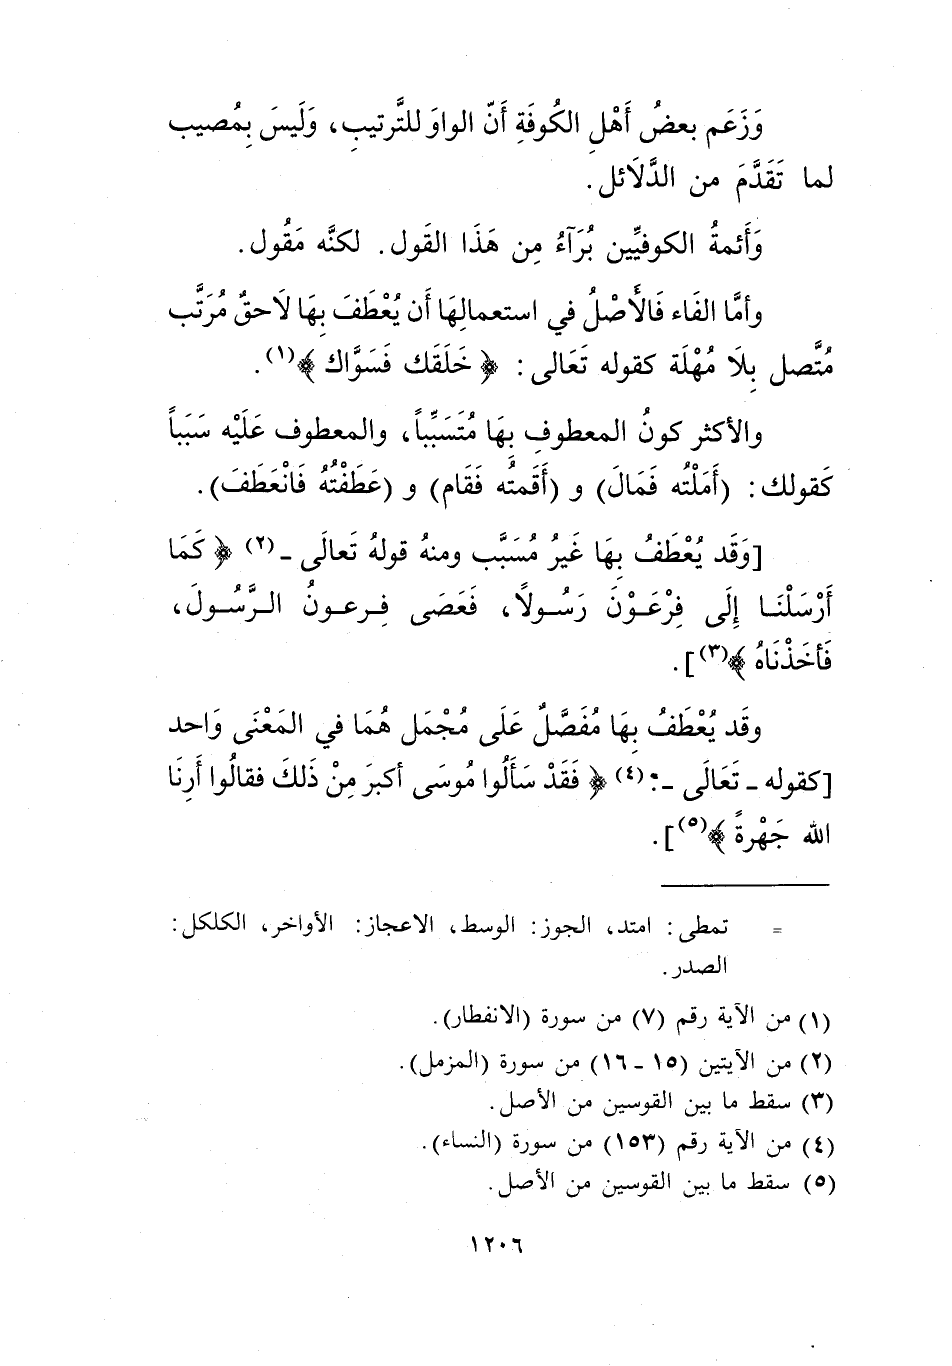 وَزَعَم بعضُ أَهْلِ الكُوفَةِ أَنّ الواوَ للتَّرتيبِ، وَلَيسَ بِمُصيب
لما تَقَدَّمَ من الدَّلَائل.
وَأَئمةُ الكوفيِّين بُرَآءُ مِن هَذَا القَول. لكنَّه مَقُول.
وأمَّا الفَاء فَالأَصْلُ في استعمالِهَا أَن يُعْطَفَ بِهَا لَاحقٌ مُرَتَّب
مُتَّصل بِلَا مُهْلَة كقوله تَعَالى: ﴿ خَلَقَك فَسَوَّاك ﴾(١).
والأكثر كونُ المعطوفِ بِهَا مُتَسَبِّباً، والمعطوف عَلَيْه سَبَباً
كَقولك: (أَمَلْتُه فَمَالَ) و (أَقَمتُه فَقَام) و (عَطَفْتُهُ فَانْعَطَفَ).
[وَقَد يُعْطَفُ بِهَا غَيرُ مُسَبَّب ومنهُ قولهُ تَعالَى ـ(٢) ﴿ كَمَا
أَرْسَلْنَا إِلَى فِرْعَوْنَ رَسُولاً، فَعَصَى فِرعونُ الرَّسُولَ،
فَأخَذْنَاهُ ﴾(٣)].
وقَد يُعْطَفُ بِهَا مُفَصَّلٌ عَلَى مُجْمَل هُمَا في المَعْنَى وَاحد
[كقوله ـ تَعَالَى ـ:(٤) ﴿ فَقَدْ سَأَلُوا مُوسَى أكبرَ مِنْ ذَلكَ فقالُوا أَرِنَا
الله جَهْرةً ﴾(٥)].
= تمطى: امتد، الجوز: الوسط، الاعجاز: الأواخر، الكلكل:
الصدر.
(١) من الآية رقم (٧) من سورة (الانفطار).
(٢) من الآيتين (١٥ ـ ١٦) من سورة (المزمل).
(٣) سقط ما بين القوسين من الأصل.
(٤) من الآية رقم (١٥٣) من سورة (النساء).
(٥) سقط ما بين القوسين من الأصل.
١٢٠٦